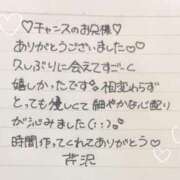 ♡チャンスのお兄様♡
ありがとうございました♡
久しぶりに会えてすごーく
嬉しかったです。相変わらず
とっても優しくて細やかな心配り
が沁みました(;;)。
時間作ってくれてありがとう♡
芹沢